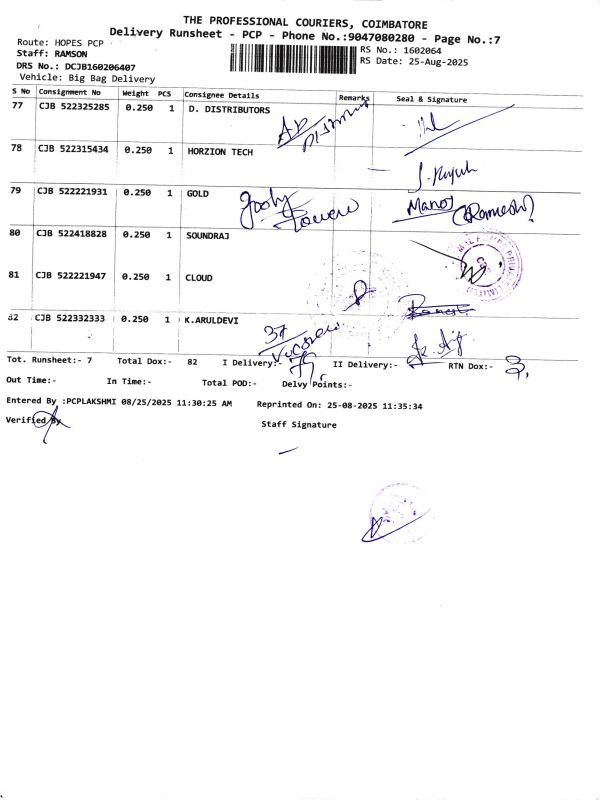 THE PROFESSIONAL COURIERS, COIMBATORE
Delivery Runsheet - PCP - Phone No.:9047080280 - Page No.:7
Route: HOPES PCP
RS No.: 1602064
Staff: RAMSON
RS Date: 25-Aug-2025
DRS No.: DCJB160206407
Vehicle: Big Bag Delivery
S No Consignment No Weight PCS Consignee Details Remarks Seal & Signature
77 CJB 522325285 0.250 1 D. DISTRIBUTORS
78 CJB 522315434 0.250 1 HORZION TECH
79 CJB 522221931 0.250 1 GOLD Manoj (Ramesh)
80 CJB 522418828 0.250 1 SOUNDRAJ
81 CJB 522221947 0.250 1 CLOUD
82 CJB 522332333 0.250 1 K.ARULDEVI 37
Tot. Runsheet:- 7 Total Dox:- 82 I Delivery:- 79 II Delivery:- RTN Dox:- 3
Out Time:- In Time:- Total POD:- Delvy Points:-
Entered By :PCPLAKSHMI 08/25/2025 11:30:25 AM Reprinted On: 25-08-2025 11:35:34
Verified By
Staff Signature